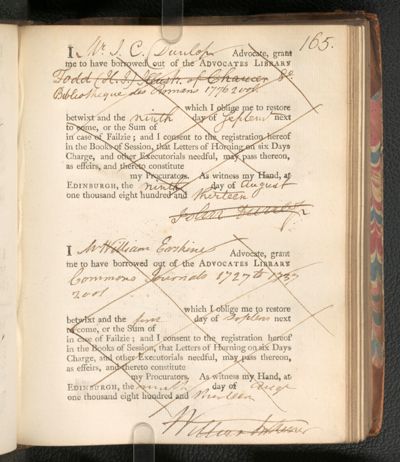 165.
I, Mr. J. C. Dunlop Advocate, grant
me to have borrowed out of the ADVOCATES LIBRARY
Todd (H. J.) of Chaucer 8o
Bibliotheque des Romans 1776 2 vol
which I oblige me to restore
betwixt and the ninth day of Septem next
to come, or the Sum of
in case of Failzie; and I consent to the registration hereof
in the Books of Session, that Letters of Horning on six Days
Charge, and other Executorials needful, may pass thereon,
as effeirs, and thereto constitute
my Procurators. As witness my Hand, at
EDINBURGH, the ninth day of August
one thousand eight hundred and thirteen
John Dunlop
I Mr William Erskine Advocate, grant
me to have borrowed out of the ADVOCATES LIBRARY
Commons Journals 1727 to 1737
2 vol
which I oblige me to restore
betwixt and the day of Septem next
to come, or the Sum of
in case of Failzie; and I consent to the registration hereof
in the Books of Session, that Letters of Horning on six Days
Charge, and other Executorials needful, may pass thereon,
as effeirs, and thereto constitute
my Procurators. As witness my Hand, at
EDINBURGH, the ninth day of Augt
one thousand eight hundred and thirteen
William Erskine